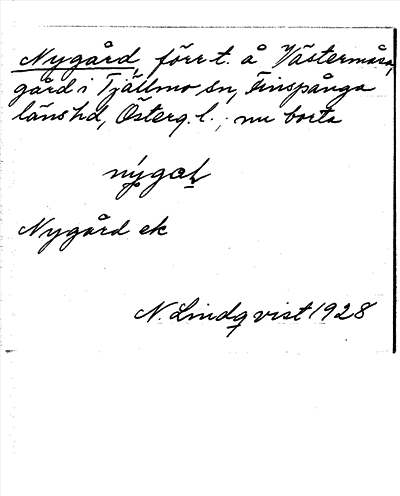 Nygård, förr t. å Västermåsa,
gård i Tjällmo sn, Finspånga
läns hd, Österg. l.; nu borta
Nygård ek
N. Lindqvist 1928